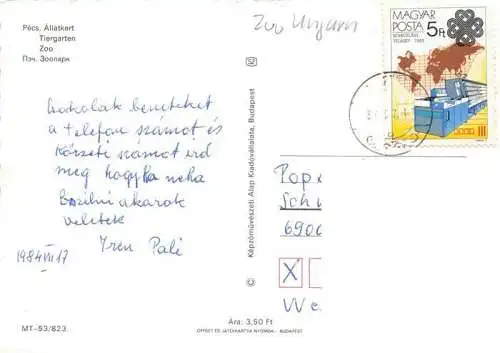 Pécs, Állatkert
Tiergarten
Zoo
Печ. Зоопарк
Zoo Ungarn
MAGYAR
POSTA
5Ft
csokolak benneteket
a telefon számot és
Körzeti számot ird
meg hogyha neha
beszilni akarok
veletek
Iren Pali
1984 VII 17
Képzőművészeti Alap Kiadóvállalata, Budapest
Pop
Schu
6900
X
We
Ára: 3,50 Ft
OFFSET ÉS JÁTÉKKÁRTYA NYOMDA - BUDAPEST
MT-83/823.